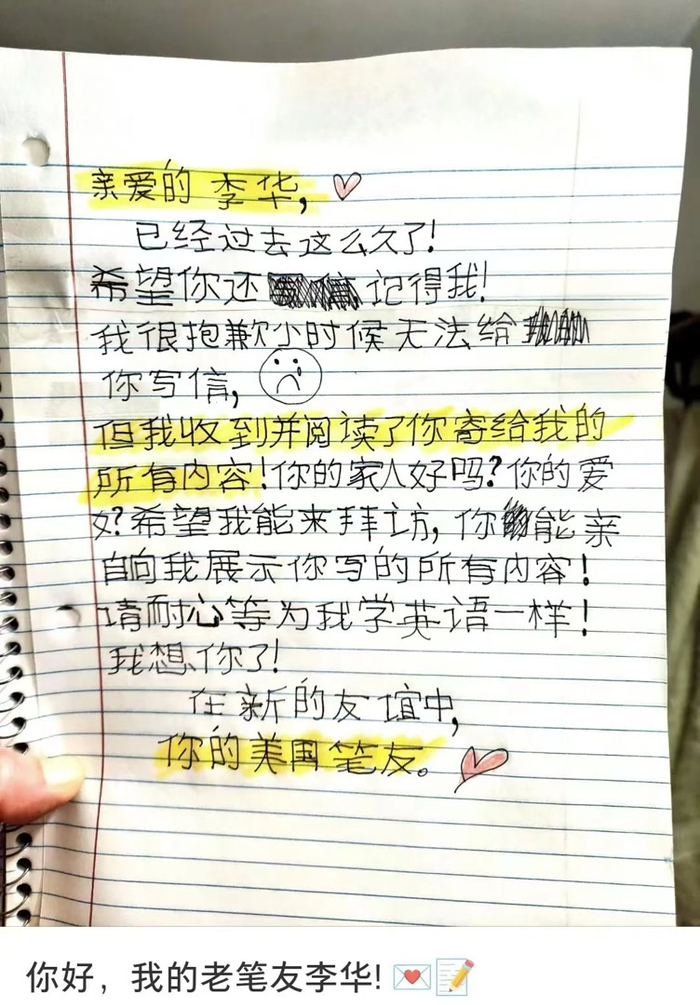 亲爱的 李华,
已经过去这么久了!
希望你还 记得我!
我很抱歉小时候无法给
你写信,
但我收到并阅读了你寄给我的
所有内容!你的家人好吗?你的爱
好?希望我能来拜访,你能亲
自向我展示你写的所有内容!
请耐心等为我学英语一样!
我想你了!
在新的友谊中,
你的美国笔友。
你好，我的老笔友李华! 💌📝